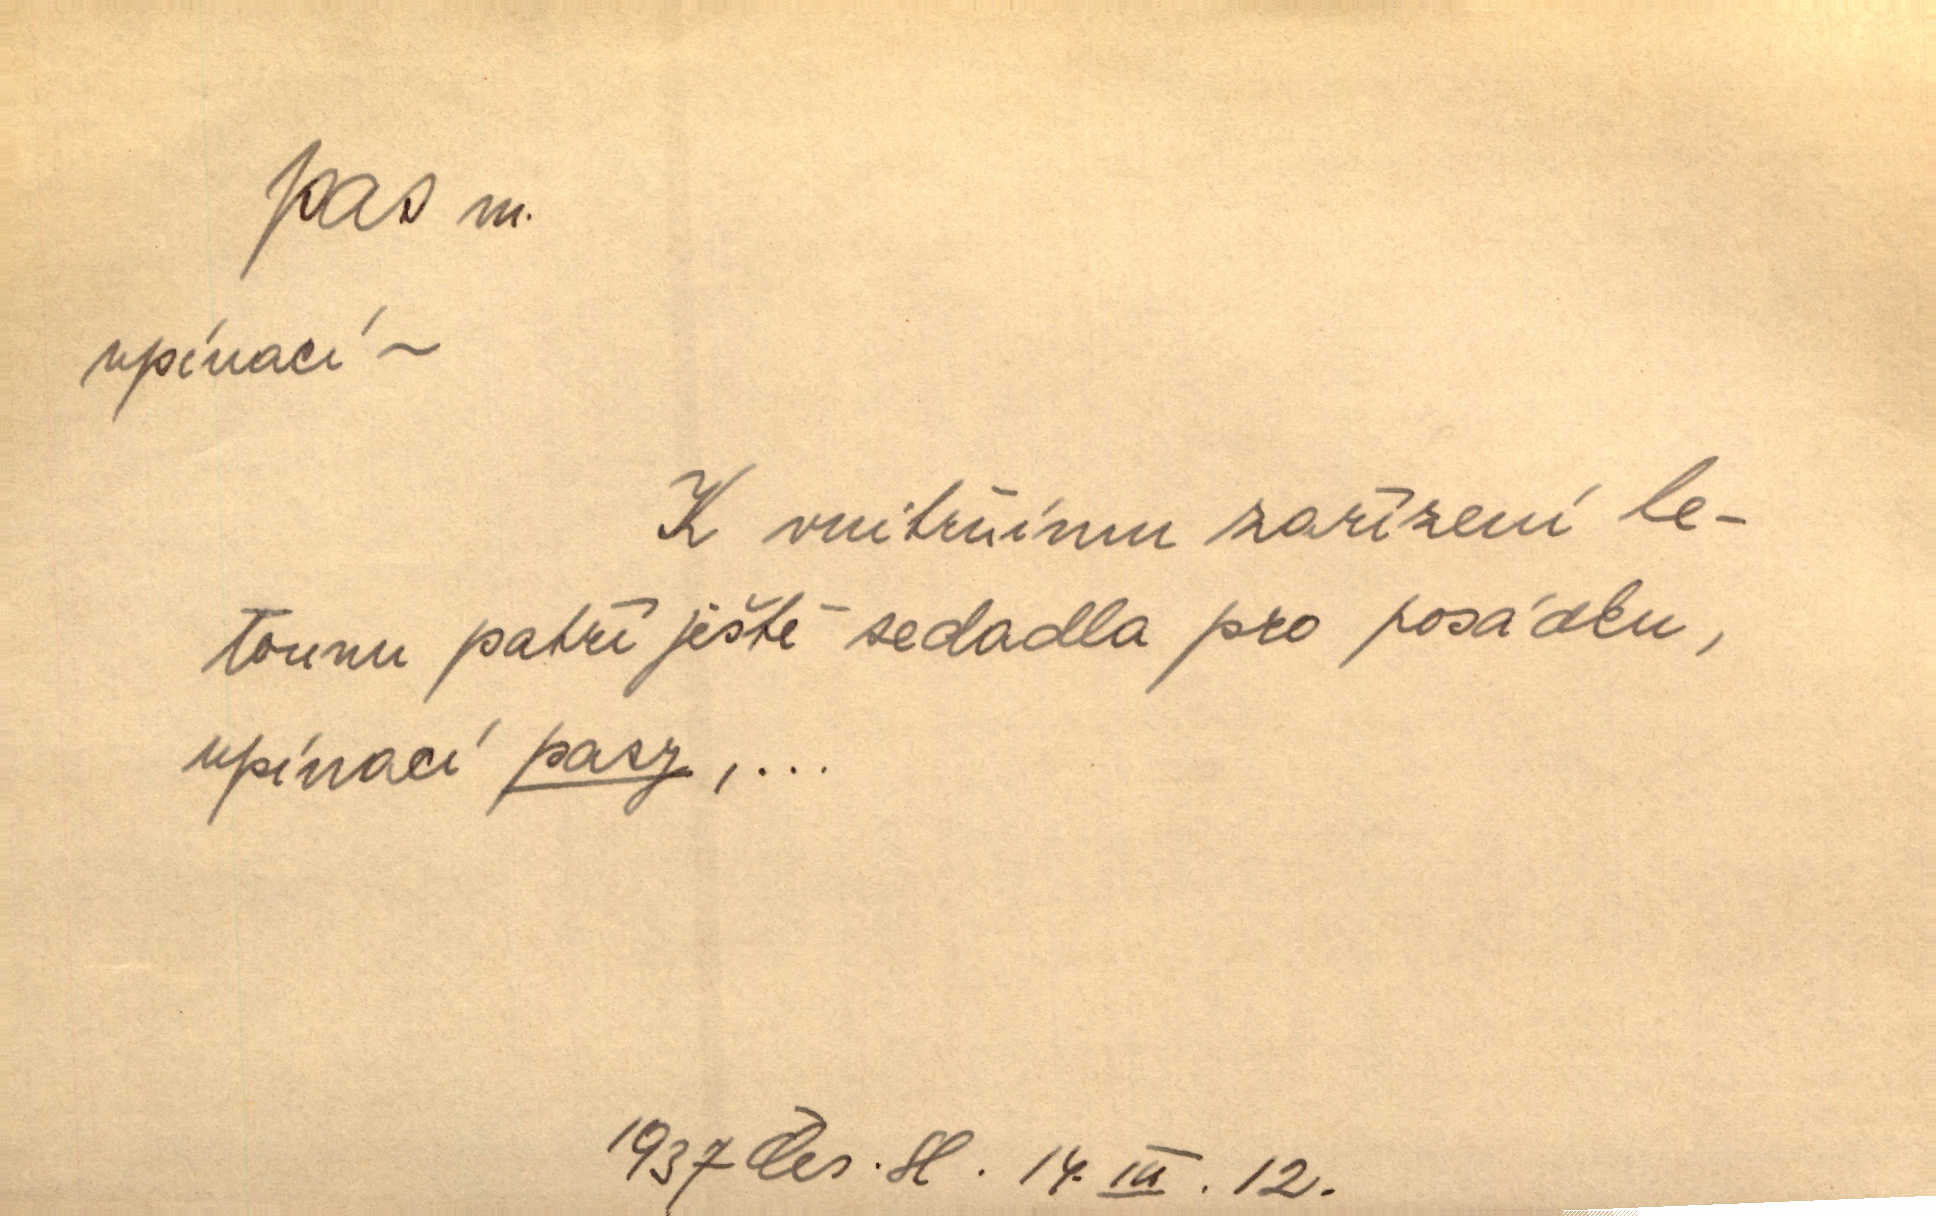 pas m.
upínací ~
K vnitřnímu zařízení le-
tounu patří ještě sedadla pro posádku,
upínací pasy, ...
1937 Čes. sl. 14. III. 12.